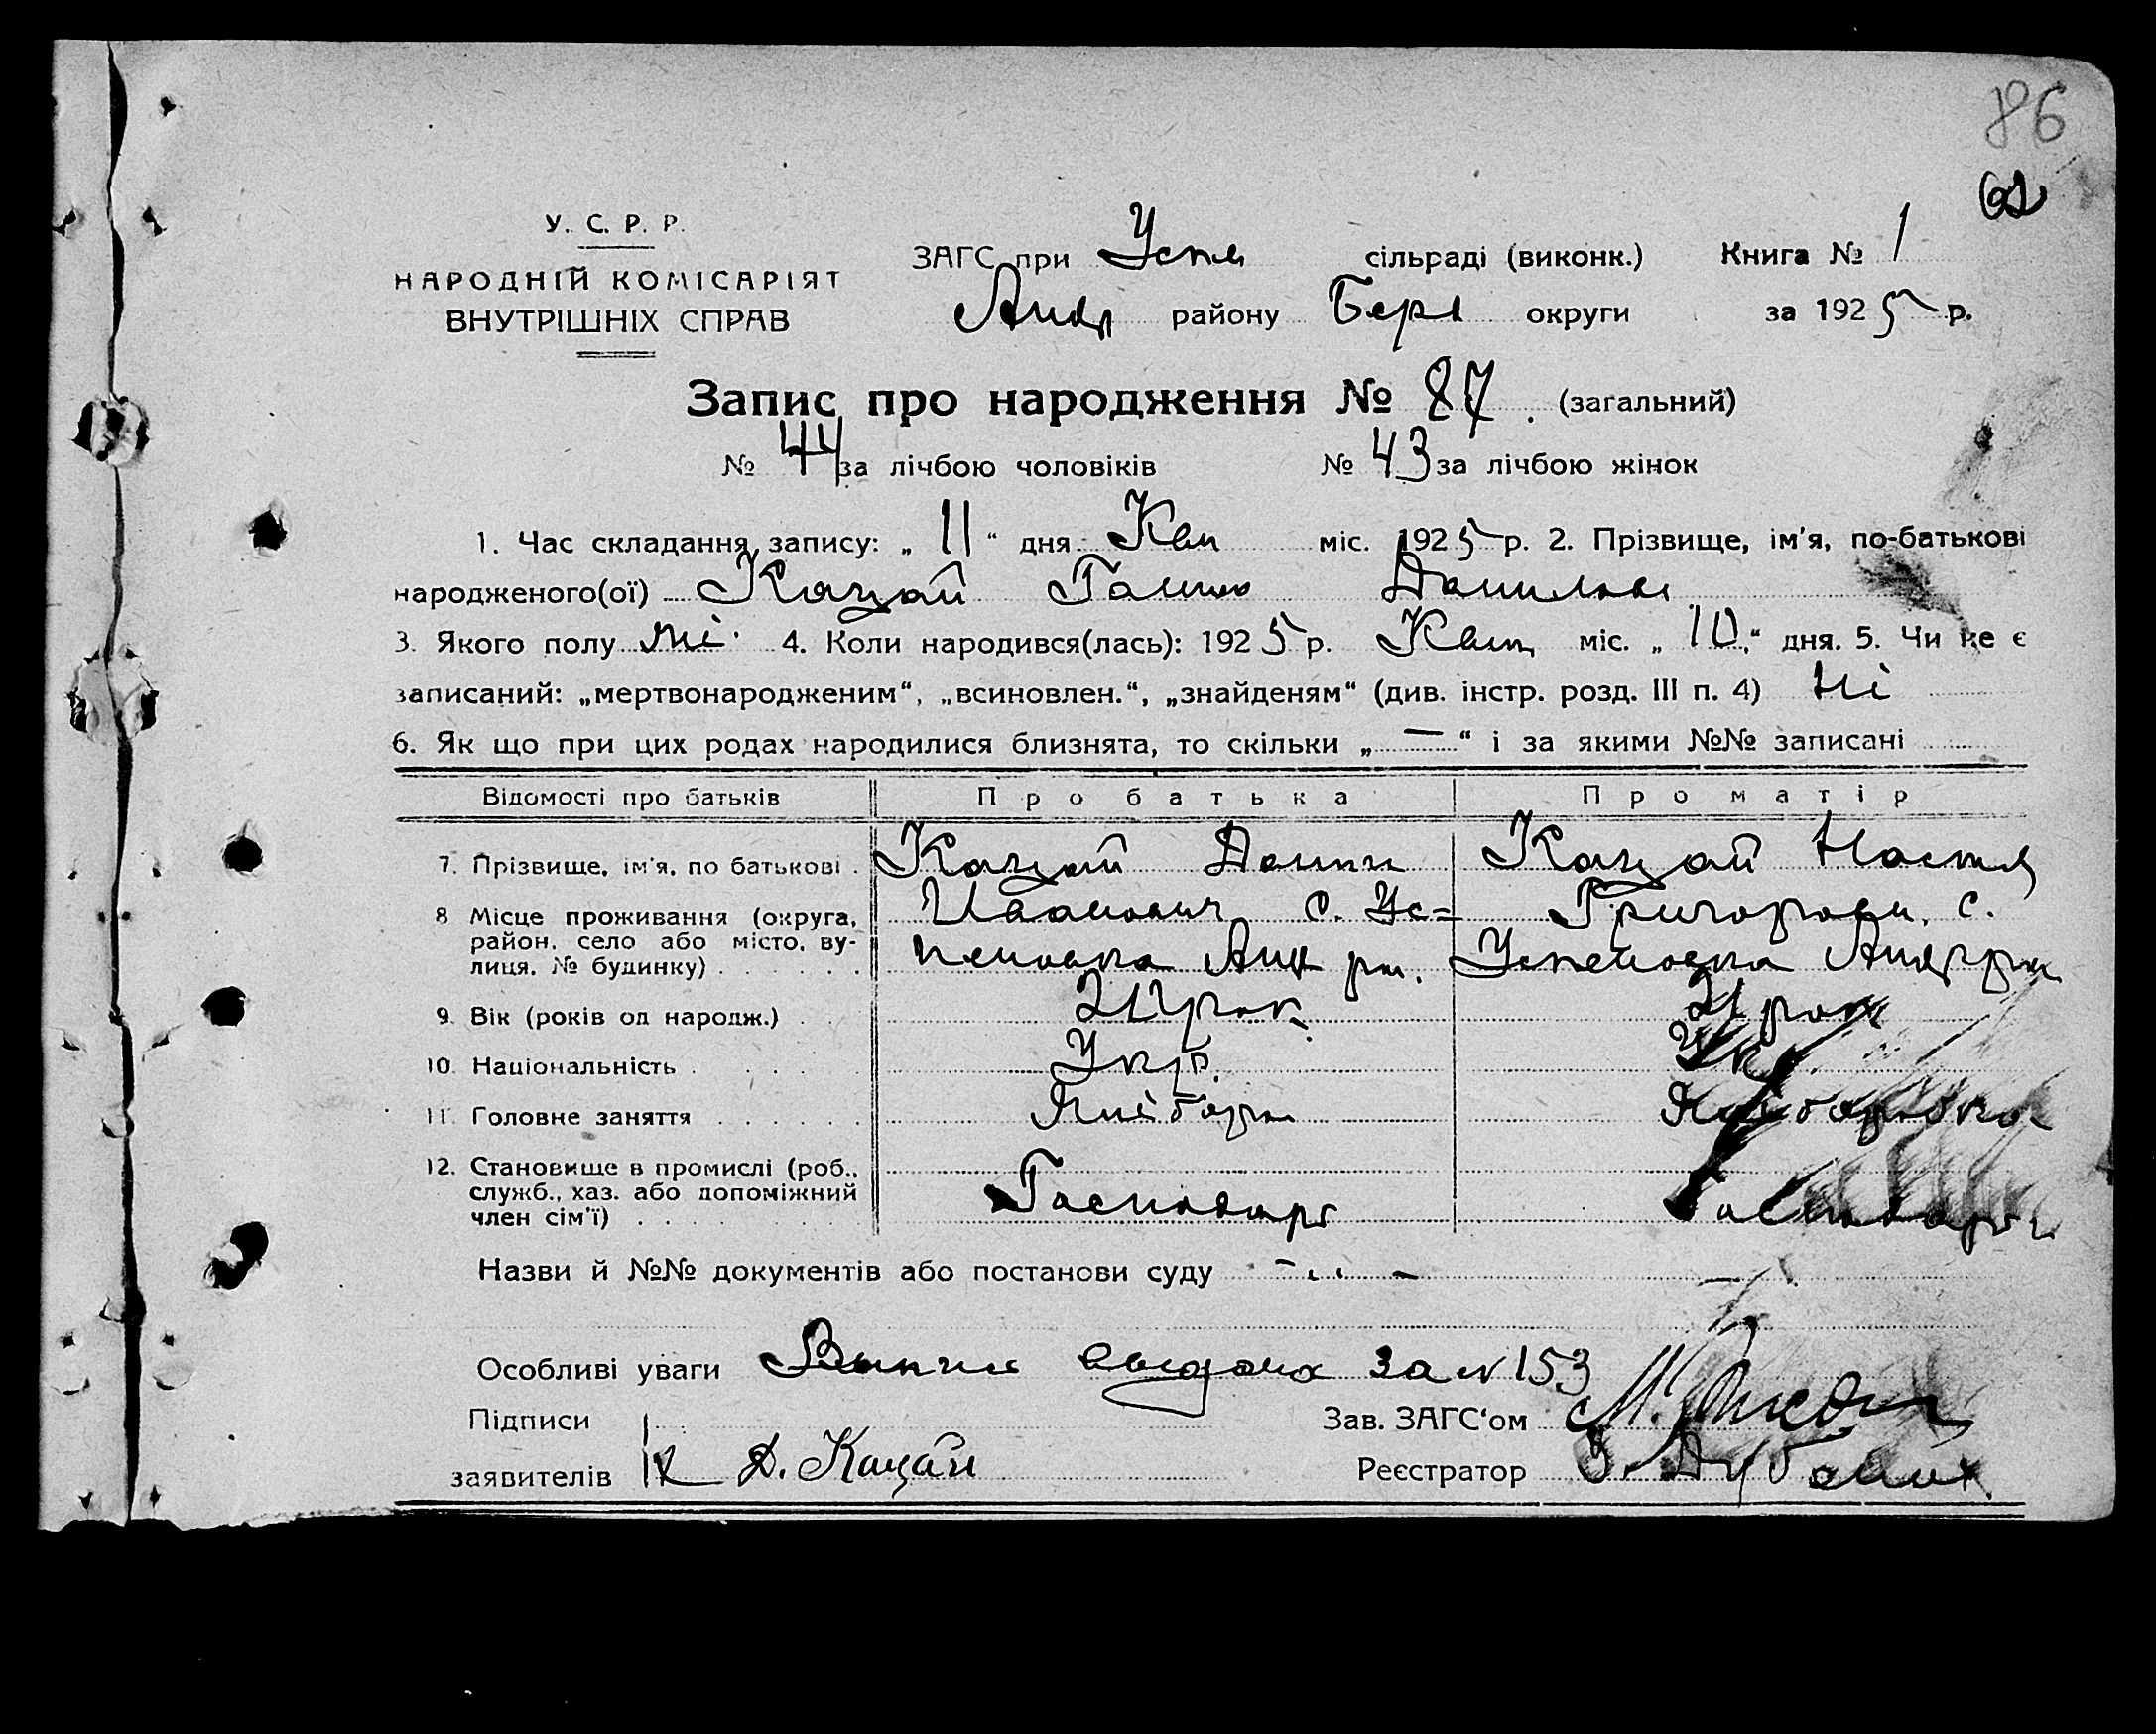 86
62
У. С. Р. Р.
НАРОДНІЙ КОМІСАРІЯТ
ВНУТРІШНІХ СПРАВ
ЗАГС при Успен сільраді (виконк.) Книга № 1
Андр району Берд округи за 1925 р.
Запис про народження № 87. (загальний)
№ 44 за лічбою чоловіків № 43 за лічбою жінок
1. Час складання запису: „ 11 “ дня Квіт міс. 1925 р. 2. Прізвище, ім'я, по-батькові
народженого(ої) Кацай Ганна Данилов
3. Якого полу жі. 4. Коли народився(лась): 1925 р. Квіт міс. „ 10 “ дня. 5. Чи не є
записаний: „мертвонародженим“, „всиновлен.“, „знайденям“ (див. інстр. розд. III п. 4) Ні
6. Як що при цих родах народилися близнята, то скільки „ — “ і за якими №№ записані
Відомості про батьків Про батька Про матір
7. Прізвище, ім'я, по батькові . Кацай Данил Кацай Настя
8 Місце проживання (округа, Иванович с. Ус= Григоровн. с.
район, село або місто, ву- пеновка Анд рн. Успеновка Андррн
лиця, № будинку)
9. Вік (років од народж.) 21 рок
10. Національність Укр. Укр
11. Головне заняття Хліборб Хліборобка
12. Становище в промислі (роб.,
служб., хаз. або допоміжний Господарь Господарка
член сім'ї)
Назви й №№ документів або постанови суду — „ —
Особливі уваги Выпис выдана за № 153
Підписи Зав. ЗАГС'ом
заявителів Д. Кацай Реєстратор